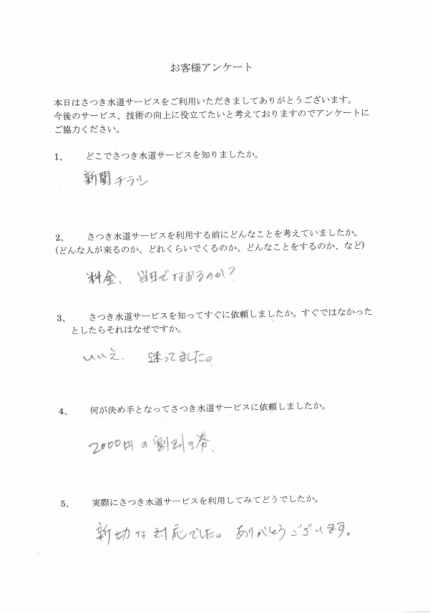 お客様アンケート
本日はさつき水道サービスをご利用いただきましてありがとうございます。
今後のサービス、技術の向上に役立てたいと考えておりますのでアンケートに
ご協力ください。
1、 どこでさつき水道サービスを知りましたか。
新聞チラシ
2、 さつき水道サービスを利用する前にどんなことを考えていましたか。
(どんな人が来るのか、どれくらいでくるのか、どんなことをするのか、など)
料金、当日でなおるのか?
3、 さつき水道サービスを知ってすぐに依頼しましたか。すぐではなかった
としたらそれはなぜですか。
いいえ、迷ってました。
4、 何が決め手となってさつき水道サービスに依頼しましたか。
2000円の割引の券
5、 実際にさつき水道サービスを利用してみてどうでしたか。
新切な対応でした。ありがとうございます。